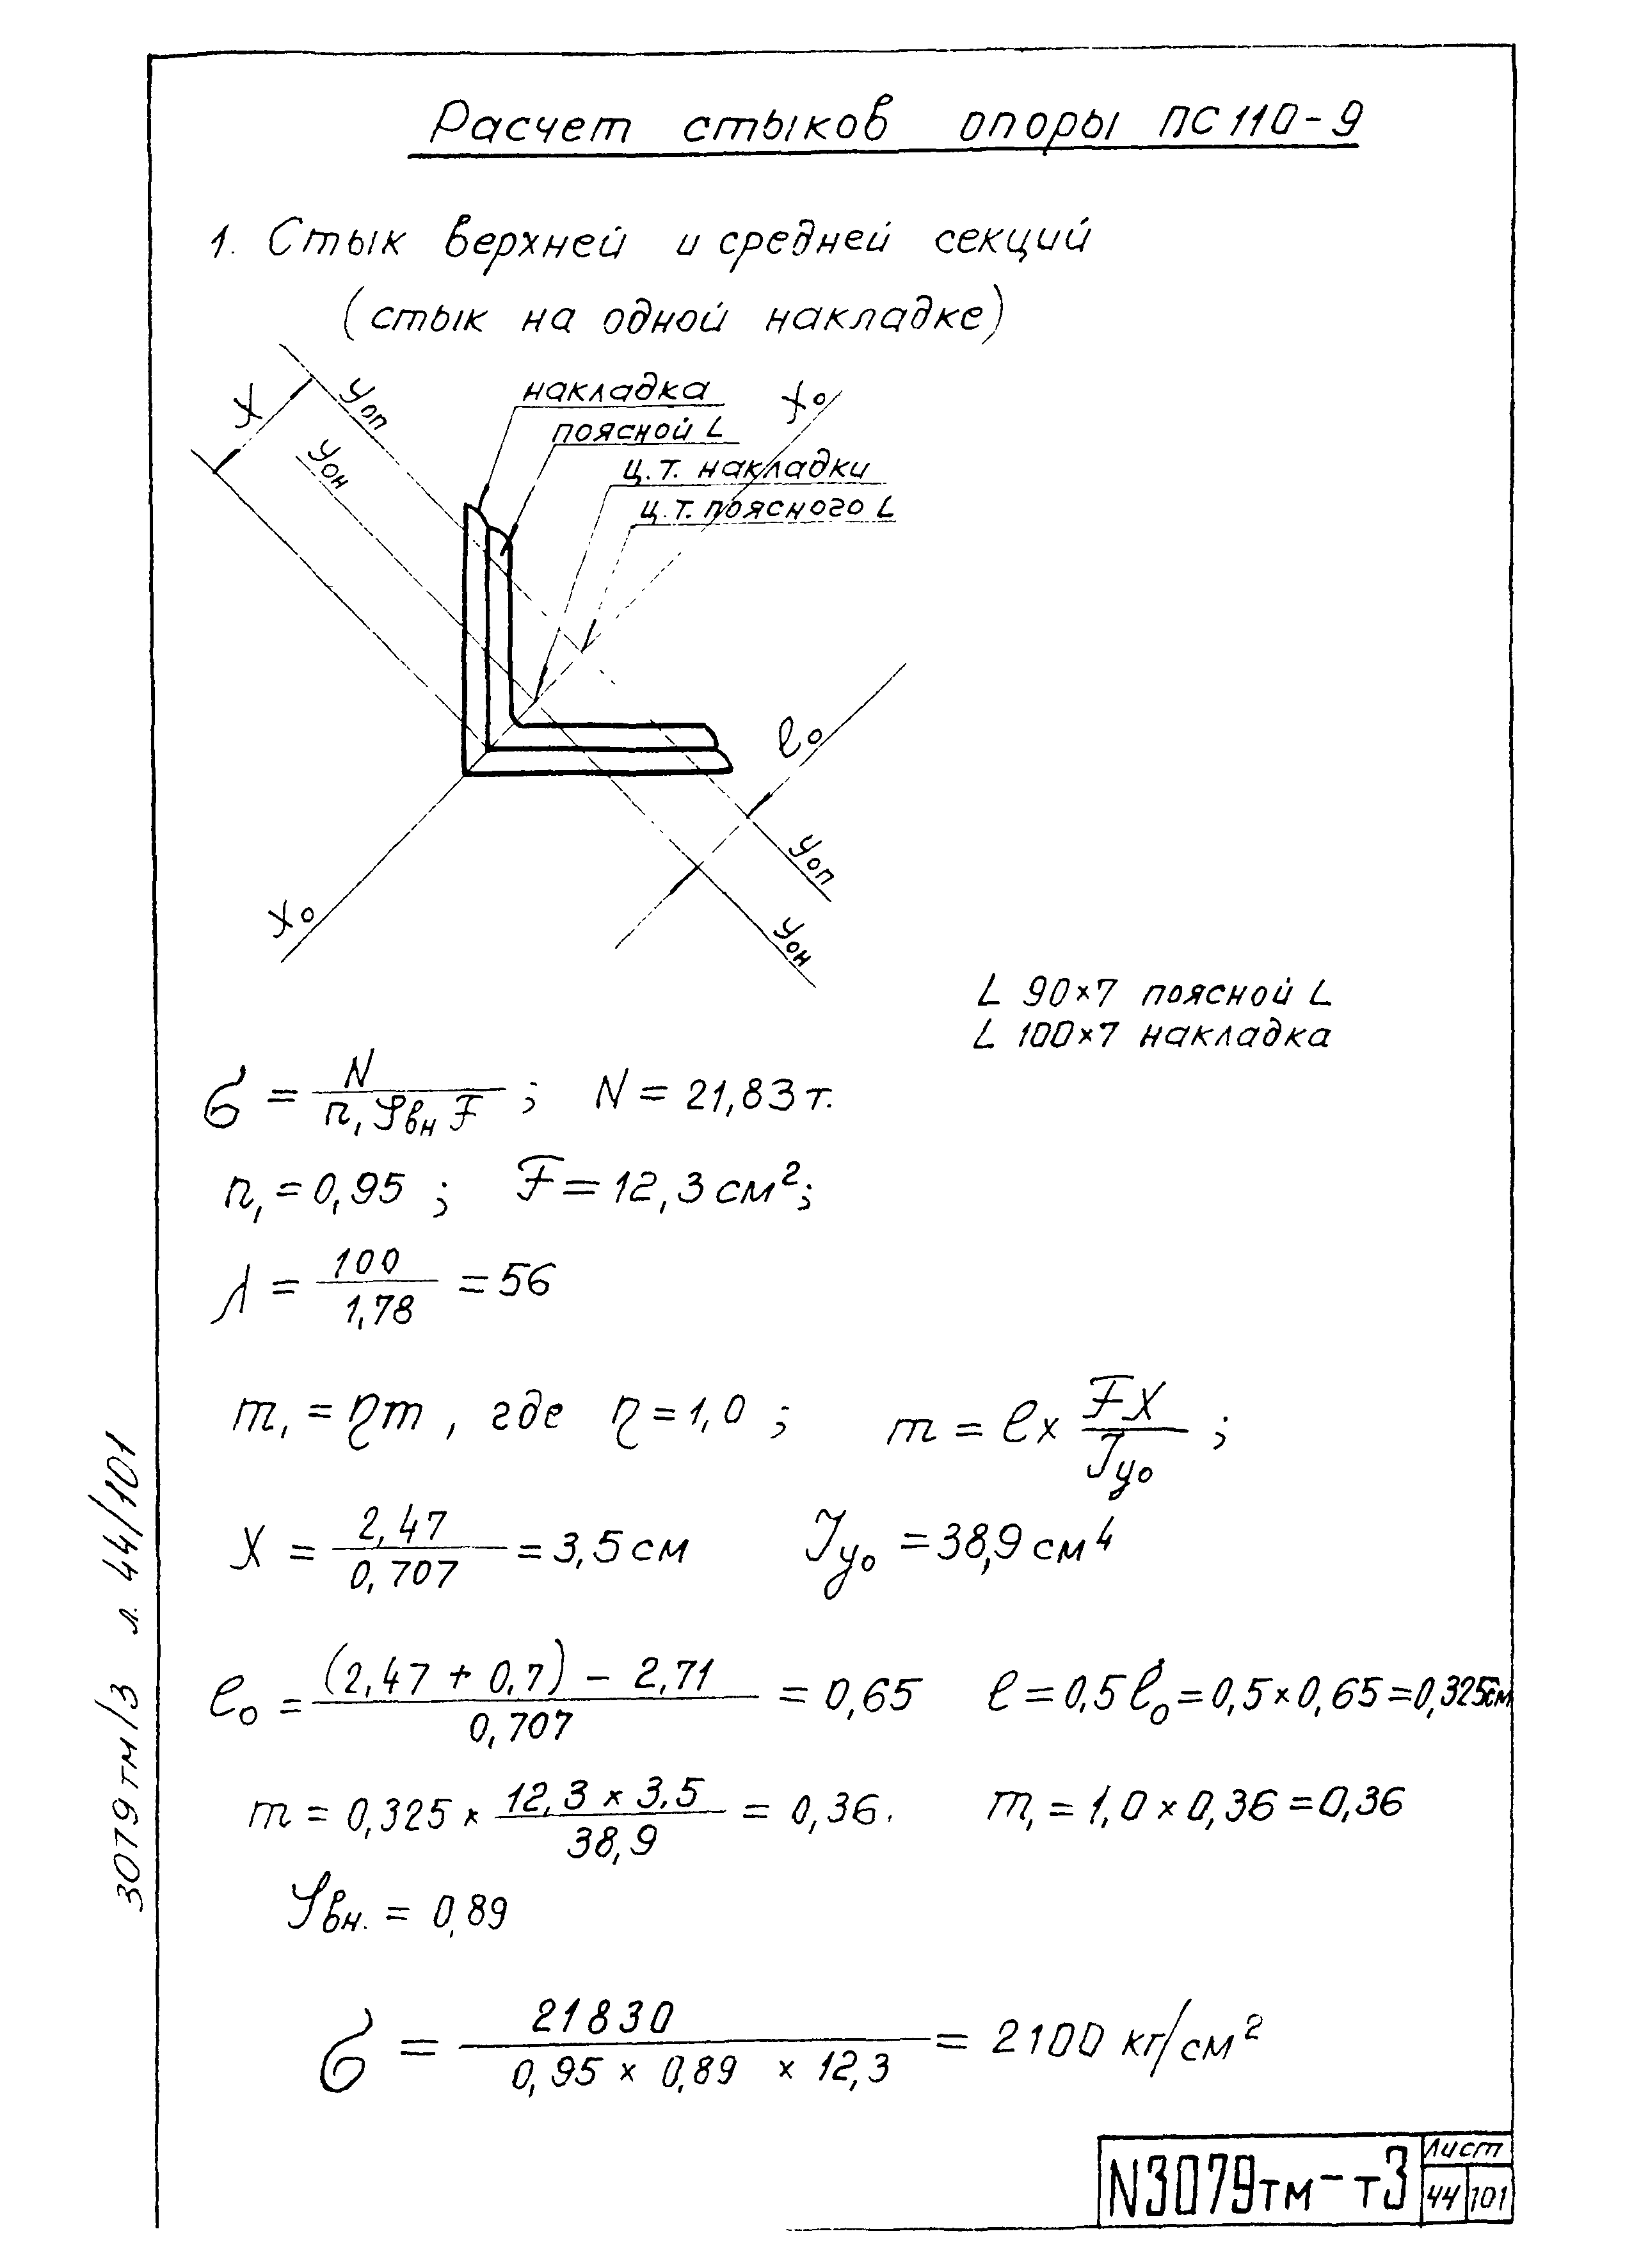 Расчет стыков опоры ПС110-9
1. Стык верхней и средней секций
(стык на одной накладке)
X
Yоп
Yон
накладка
поясной L
ц.т. накладки
ц.т. поясного L
X₀
ℓ₀
Yоп
Yон
X₀
L 90×7 поясной L
L 100×7 накладка
σ = N / (n₁ φвн F) ; N = 21,83 т.
n₁ = 0,95 ; F = 12,3 см²;
λ = 100 / 1,78 = 56
m₁ = ηm , где η = 1,0 ; m = ℓ× FX / Jy₀ ;
X = 2,47 / 0,707 = 3,5 см Jy₀ = 38,9 см⁴
ℓ₀ = (2,47 + 0,7) - 2,71 / 0,707 = 0,65 ℓ = 0,5 ℓ₀ = 0,5 × 0,65 = 0,325 см
m = 0,325 × 12,3 × 3,5 / 38,9 = 0,36. m₁ = 1,0 × 0,36 = 0,36
φвн. = 0,89
σ = 21830 / 0,95 × 0,89 × 12,3 = 2100 кг/см²
3079тм/3 л. 44/101
N3079тм-т3
Лист
44 101